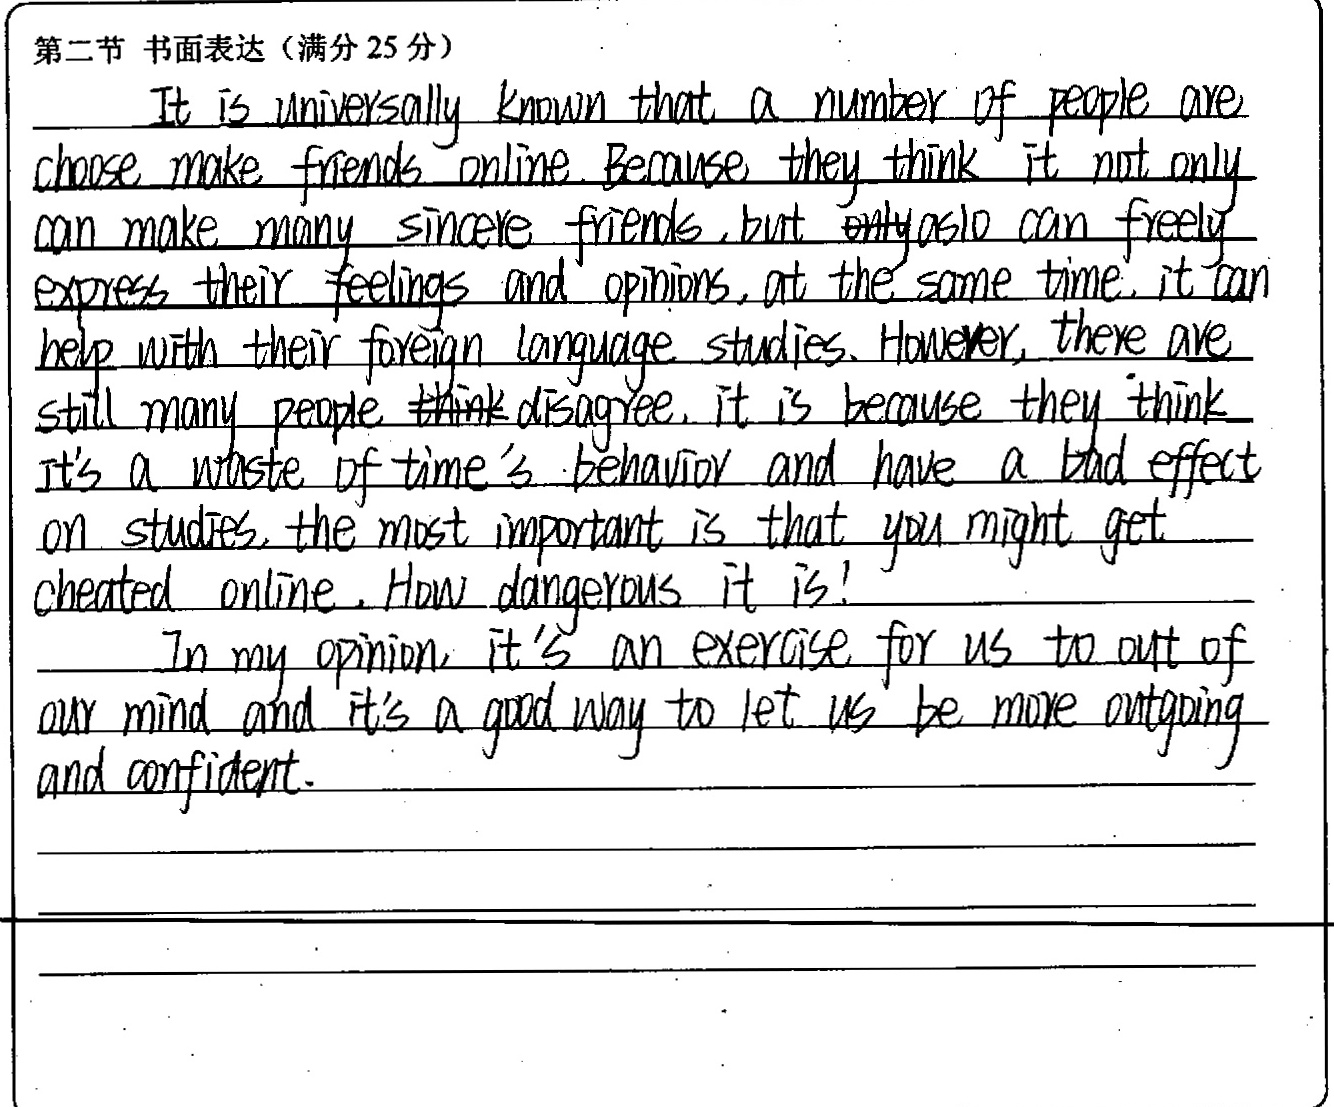 第二节 书面表达（满分 25 分）
It is universally known that a number of people are
choose make friends online. Because they think it not only
can make many sincere friends, but only aslo can freely
express their feelings and opinions, at the same time, it can
help with their foreign language studies. However, there are
still many people think disagree, it is because they think
it's a waste of time's behavior and have a bad effect
on studies, the most important is that you might get
cheated online. How dangerous it is!
In my opinion, it's an exercise for us to out of
our mind and it's a good way to let us be more outgoing
and confident.